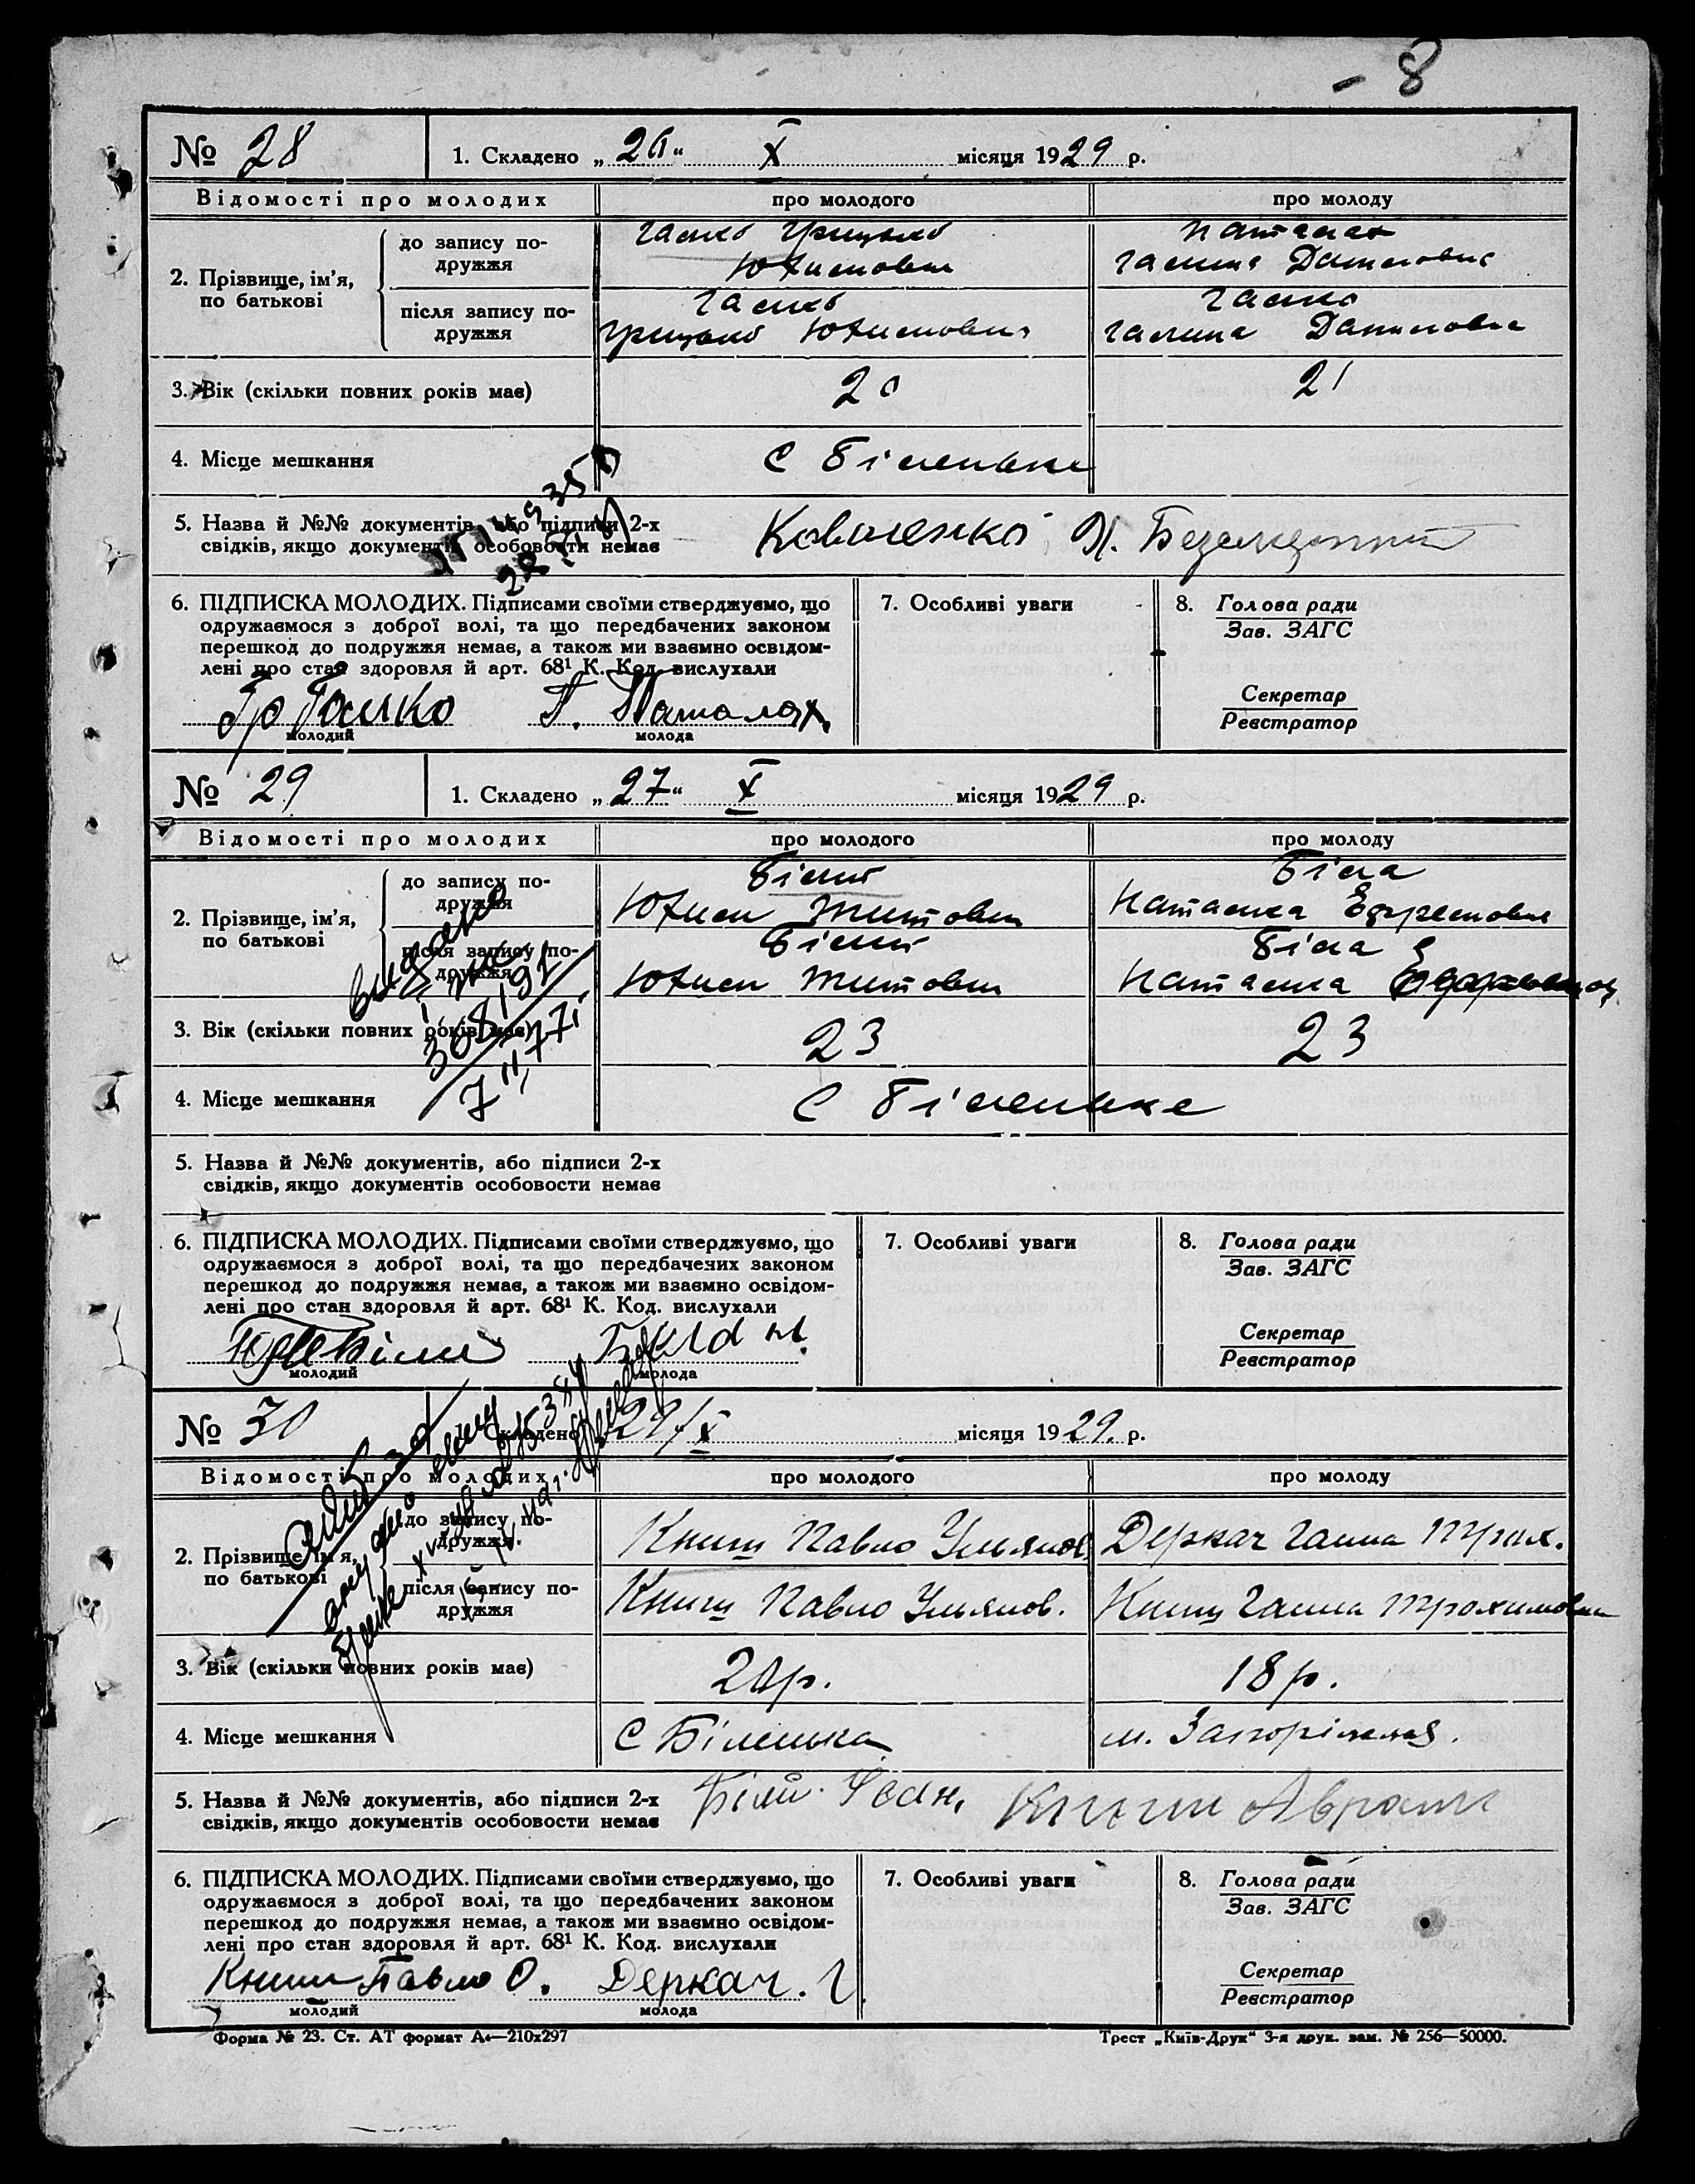 - 8
№ 28
1. Складено „ 26 “ X місяця 1929 р.
Відомості про молодих
про молодого
про молоду
2. Прізвище, ім'я, по батькові
до запису по-
дружжя
Галко Грицько
Юхимович
Паталах
Галина Данилов
після запису по-
дружжя
Галко
Грицько Юхимович
Галко
Галина Данилов
3. Вік (скільки повних років має)
20
21
4. Місце мешкання
С Біленьке
5. Назва й №№ документів, або підписи 2-х
свідків, якщо документів особовости немає
Коваленко
6. ПІДПИСКА МОЛОДИХ. Підписами своїми стверджуємо, що
одружаємося з доброї волі, та що передбачених законом
перешкод до подружжя немає, а також ми взаємно освідом-
лені про стан здоровля й арт. 68¹ К. Код. вислухали
Гр Галко
Г. Паталах
молодий
молода
7. Особливі уваги
8. Голова ради
Зав. ЗАГС
Секретар
Реєстратор
№ 29
1. Складено „ 27 “ X місяця 1929 р.
Відомості про молодих
про молодого
про молоду
2. Прізвище, ім'я, по батькові
до запису по-
дружжя
Білий
Юхим Титович
Біла
Наталка
після запису по-
дружжя
Білий
Юхим Титович
Біла
Наталка
видано
3. Вік (скільки повних років має)
23
23
4. Місце мешкання
С Біленьке
5. Назва й №№ документів, або підписи 2-х
свідків, якщо документів особовости немає
6. ПІДПИСКА МОЛОДИХ. Підписами своїми стверджуємо, що
одружаємося з доброї волі, та що передбачених законом
перешкод до подружжя немає, а також ми взаємно освідом-
лені про стан здоровля й арт. 68¹ К. Код. вислухали
Білий
молодий
молода
7. Особливі уваги
8. Голова ради
Зав. ЗАГС
Секретар
Реєстратор
№ 30
Складено 29/X місяця 1929. р.
Відомості про молодих
про молодого
про молоду
2. Прізвище, ім'я, по батькові
до запису по-
дружжя
Книш Павло Ульянов
Деркач Ганна Трох.
після запису по-
дружжя
Книш Павло Ульянов.
Книш Ганна Трохимовна
3. Вік (скільки повних років має)
20р.
18р.
4. Місце мешкання
С Біленька
м. Запоріжжя.
5. Назва й №№ документів, або підписи 2-х
свідків, якщо документів особовости немає
Білий Іван, Книш Аврам
6. ПІДПИСКА МОЛОДИХ. Підписами своїми стверджуємо, що
одружаємося з доброї волі, та що передбачених законом
перешкод до подружжя немає, а також ми взаємно освідом-
лені про стан здоровля й арт. 68¹ К. Код. вислухали
Книш Павло О.
Деркач. Г.
молодий
молода
7. Особливі уваги
8. Голова ради
Зав. ЗАГС
Секретар
Реєстратор
Форма № 23. Ст. АТ формат А4—210х297
Трест „Київ-Друк“ 3-я друк. зам. № 256—50000.